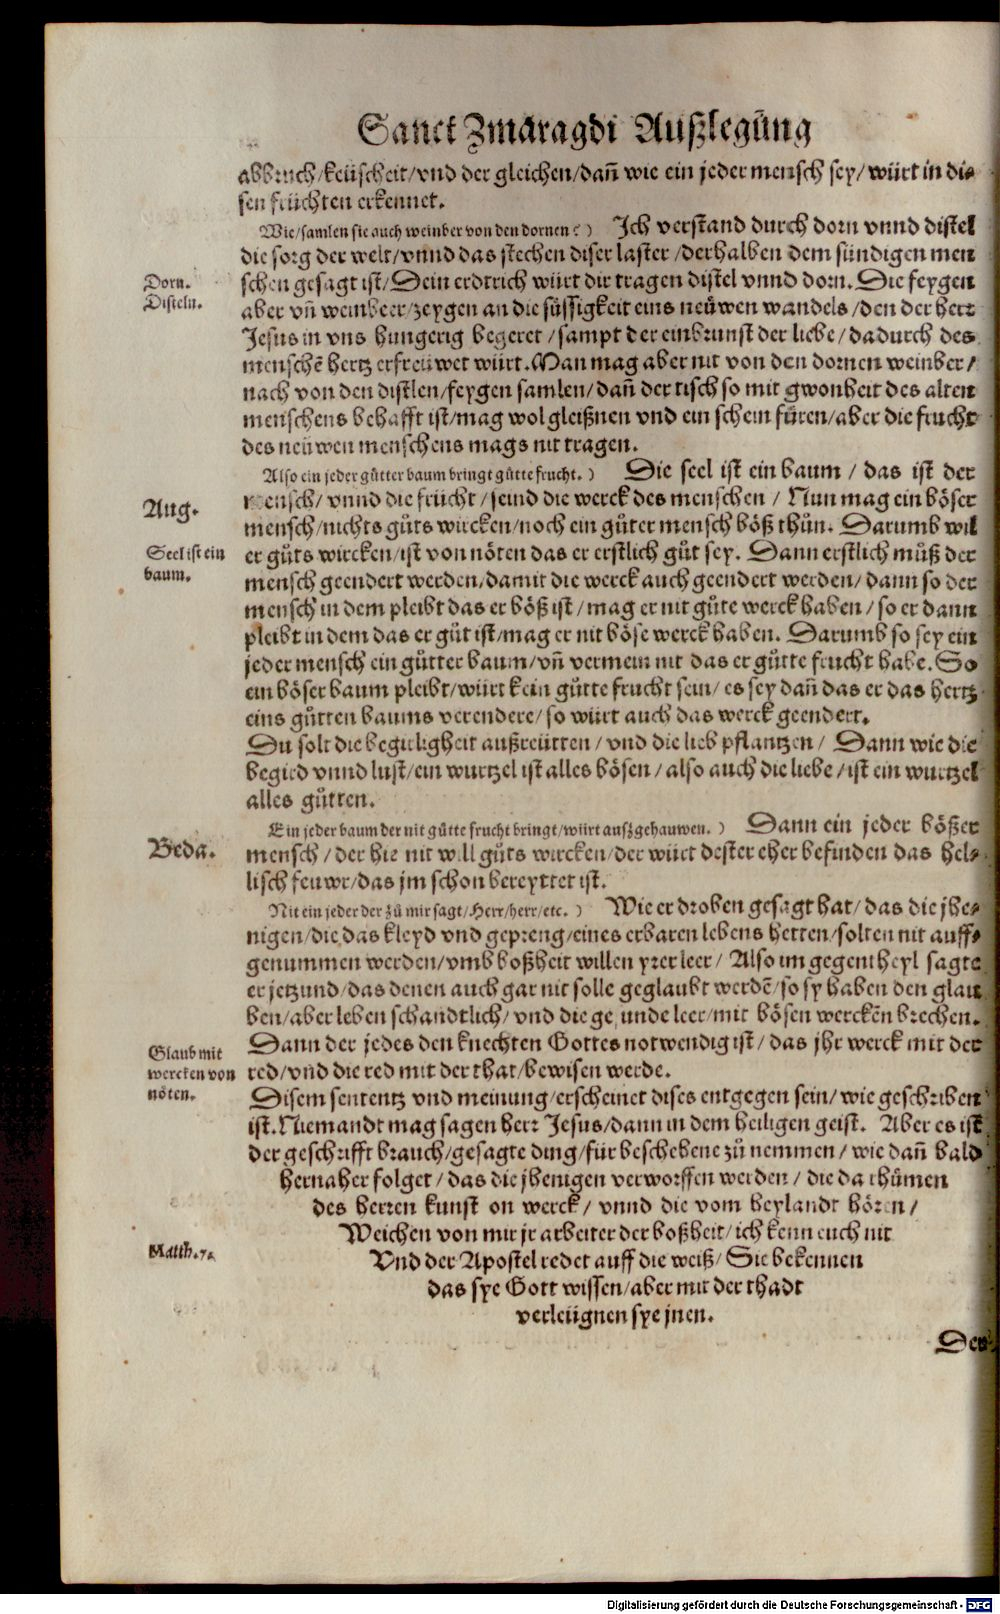 Sanct Zmaragdi Außlegůng
abbruch/keüscheit/vnd der gleichen/dañ wie ein jeder mensch sey/würt in di⸗
sen früchten erkennet.
Wie/samlen sie auch weinber von den dornen?) Ich verstand durch dorn vnnd distel
die sorg der welt/vnnd das stechen diser laster/derhalben dem sündigen men
Dorn.
Disteln.
schen gesagt ist/Dein erdtrich würt dir tragen distel vnnd dorn. Die feygen
aber vñ weinbeer/zeygen an die süssigkeit eins neüwen wandels/den der herr
Jesus in vns hungerig begeret/sampt der einbrunst der liebe/dadurch des
menschē hertz erfreüwet würt. Man mag aber nit von den dornen weinber/
nach von den distlen/feygen samlen/dañ der tisch so mit gwonheit des alten
menschens behafft ist/mag wol gleißnen vnd ein schein füren/aber die frucht
des neüwen menschens mags nit tragen.
Also ein jeder gůtter baum bringt gůtte frucht.) Die seel ist ein baum/das ist der
Aug.
mensch/vnnd die frücht/seind die werck des menschen/Nun mag ein böser
mensch/nichts gůts wircken/noch ein gůter mensch böß thůn. Darumb wil
Seel ist ein
baum.
er gůts wircken/ist von nöten das er erstlich gůt sey. Dann erstlich můß der
mensch geendert werden/damit die werck auch geendert werden/dann so der
mensch in dem pleibt das er böß ist/mag er nit gůte werck haben/so er dann
pleibt in dem das er gůt ist/mag er nit böse werck haben. Darumb so sey ein
jeder mensch ein gůtter baum/vñ vermein nit das er gůtte frucht habe. So
ein böser baum pleibt/würt kein gůtte frucht sein/es sey dañ das er das hertz
eins gůtten baums verendere/so würt auch das werck geendert.
Du solt die begirligheit außreütten/vnd die lieb pflantzen/Dann wie die
begird vnnd lust/ein wurtzel ist alles bösen/also auch die liebe/ist ein wurtzel
alles gůtten.
Ein jeder baum der nit gůtte frucht bringt/würt außgehauwen.) Dann ein jeder bößer
Beda.
mensch/der hie nit will gůts wircken/der würt dester eher befinden das hel⸗
lisch feuwr/das jm schon bereyttet ist.
Nit ein jeder der zů mir sagt/Herr/herr/etc.) Wie er droben gesagt hat/das die jhe⸗
nigen/die das kleyd vnd gepreng/eines erbaren lebens hetten/solten nit auff⸗
genummen werden/vmb boßheit willen yrer leer/Also im gegentheyl sagte
er jetzund/das denen auch gar nit solle geglaubt werdē/so sy haben den glau
ben/aber leben schandtlich/vnd die gesunde leer/mit bösen werckēn brechen.
Glaub mit
wercken von
nöten.
Dann der jedes den knechten Gottes notwendig ist/das jhr werck mit der
red/vnd die red mit der that/bewisen werde.
Disem sententz vnd meinung/erscheinet dises entgegen sein/wie geschriben
ist. Niemandt mag sagen herr Jesus/dann in dem heiligen geist. Aber es ist
der geschrifft brauch/gesagte ding/für beschehene zů nemmen/wie dañ bald
hernaher folget/das die jhenigen verworffen werden/die da rhůmen
des herren kunst on werck/vnnd die vom heylandt hören/
Matth.7.
Weichen von mir jr arbeiter der boßheit/ich kenn euch nit
Vnd der Apostel redet auff die weiß/Sie bekennen
das sye Gott wissen/aber mit der thadt
verleügnen sye jnen.
Den
Digitalisierung gefördert durch die Deutsche Forschungsgemeinschaft - DFG